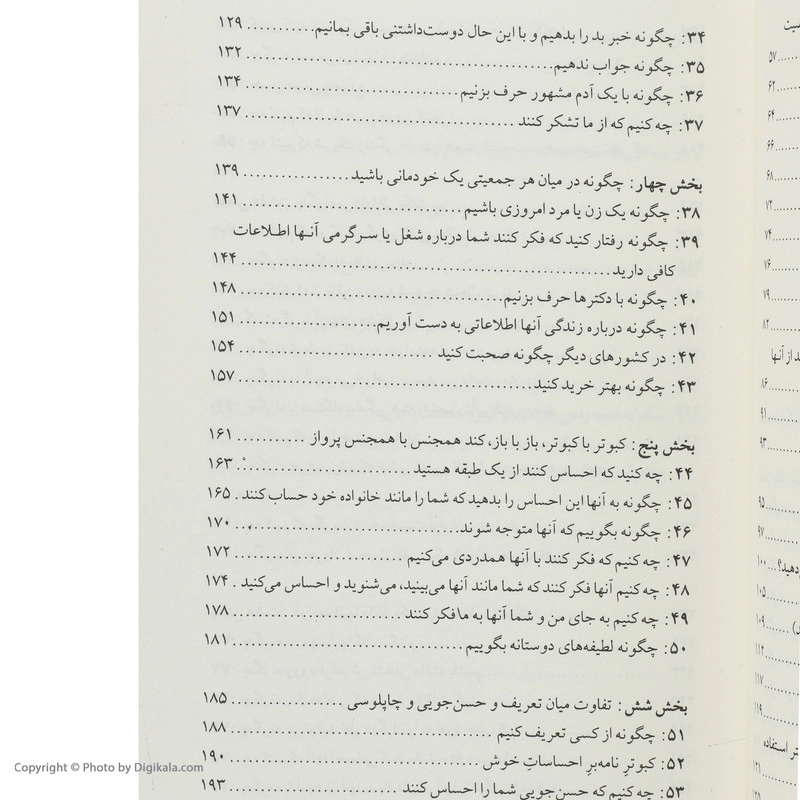 ۳۴: چگونه خبر بد را بدهیم و با این حال دوست‌داشتنی باقی بمانیم........... ۱۲۹
۳۵: چگونه جواب ندهیم................................................ ۱۳۲
۳۶: چگونه با یک آدم مشهور حرف بزنیم................................ ۱۳۴
۳۷: چه کنیم که از ما تشکر کنند ................................ ۱۳۷
بخش چهار: چگونه در میان هر جمعیتی یک خودمانی باشید................ ۱۳۹
۳۸: چگونه یک زن یا مرد امروزی باشیم................................ ۱۴۱
۳۹: چگونه رفتار کنید که فکر کنند شما درباره شغل یا سرگرمی آنها اطلاعات
کافی دارید...................................................... ۱۴۴
۴۰: چگونه با دکترها حرف بزنیم..................................... ۱۴۸
۴۱: چگونه درباره زندگی آنها اطلاعاتی به دست آوریم.................. ۱۵۱
۴۲: در کشورهای دیگر چگونه صحبت کنید ............................ ۱۵۴
۴۳: چگونه بهتر خرید کنید......................................... ۱۵۷
بخش پنج: کبوتر با کبوتر، باز با باز، کند همجنس با همجنس پرواز .......... ۱۶۱
۴۴: چه کنید که احساس کنند از یک طبقه هستید........................ ۱۶۳
۴۵: چگونه به آنها این احساس را بدهید که شما را مانند خانواده خود حساب کنند . ۱۶۵
۴۶: چگونه بگوییم که آنها متوجه شوند............................... ۱۷۰
۴۷: چه کنیم که فکر کنند با آنها همدردی می‌کنیم ........................ ۱۷۲
۴۸: چه کنیم آنها فکر کنند که شما مانند آنها می‌بینید، می‌شنوید و احساس می‌کنید . ۱۷۴
۴۹: چه کنیم به جای من و شما آنها به ما فکر کنند ........................ ۱۷۸
۵۰: چگونه لطیفه‌های دوستانه بگوییم................................. ۱۸۱
بخش شش: تفاوت میان تعریف و حسن‌جویی و چاپلوسی ................ ۱۸۵
۵۱: چگونه از کسی تعریف کنیم ................................ ۱۸۸
۵۲: کبوترِ نامه‌برِ احساساتِ خوش ................................ ۱۹۰
۵۳: چه کنیم که حسن‌جویی شما را احساس کنند ........................ ۱۹۳
۵۷
۶۲
۶۴
۶۶
۶۸
۷۲
۷۴
۷۶
۷۹
۸۲
د از آنها
۸۶
۹۱
۹۳
۹۵
۹۷
دهید؟... ۱۰۰
۱۰۵
۱۰۹
۱۱۲
۱۱۷
۱۱۹
تر استفاده
۱۲۱
Copyright © Photo by Digikala.com